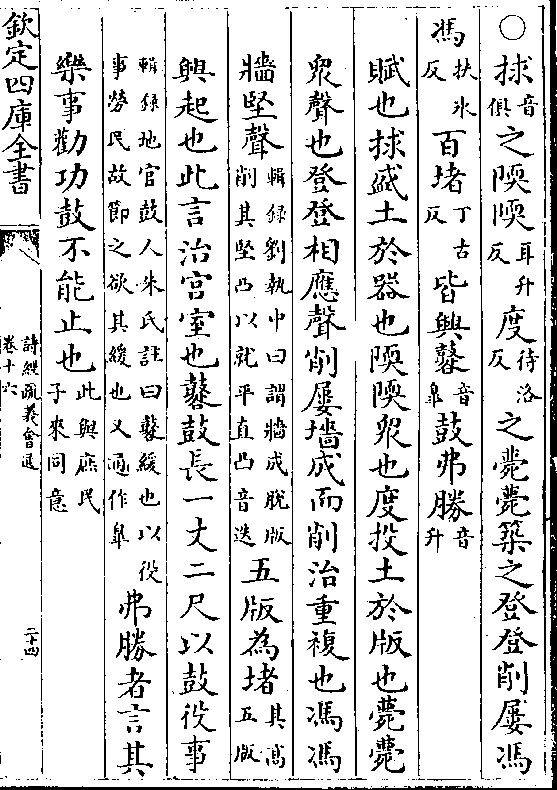 ○捄音俱之陾陾耳升反度待洛反之薨薨築之登登削屢馮
馮扶氷反百堵丁古反皆興鼛音臯鼓弗勝音升
賦也捄盛土於器也陾陾衆也度投土於版也薨薨
衆聲也登登相應聲削屢墻成而削治重複也馮馮
牆堅聲輯録劉執中曰謂牆成脫版削其堅凸以就平直凸音迭五版為堵其高五版
興起也此言治宫室也鼛鼓長一丈二尺以鼓役事
輯録地官鼓人朱氏註曰鼛緩也以役事勞民故節之欲其緩也又通作臯弗勝者言其
樂事勸功鼓不能止也此與庶民子來同意
欽定四庫全書
詩經疏義會通
卷十六
二十四